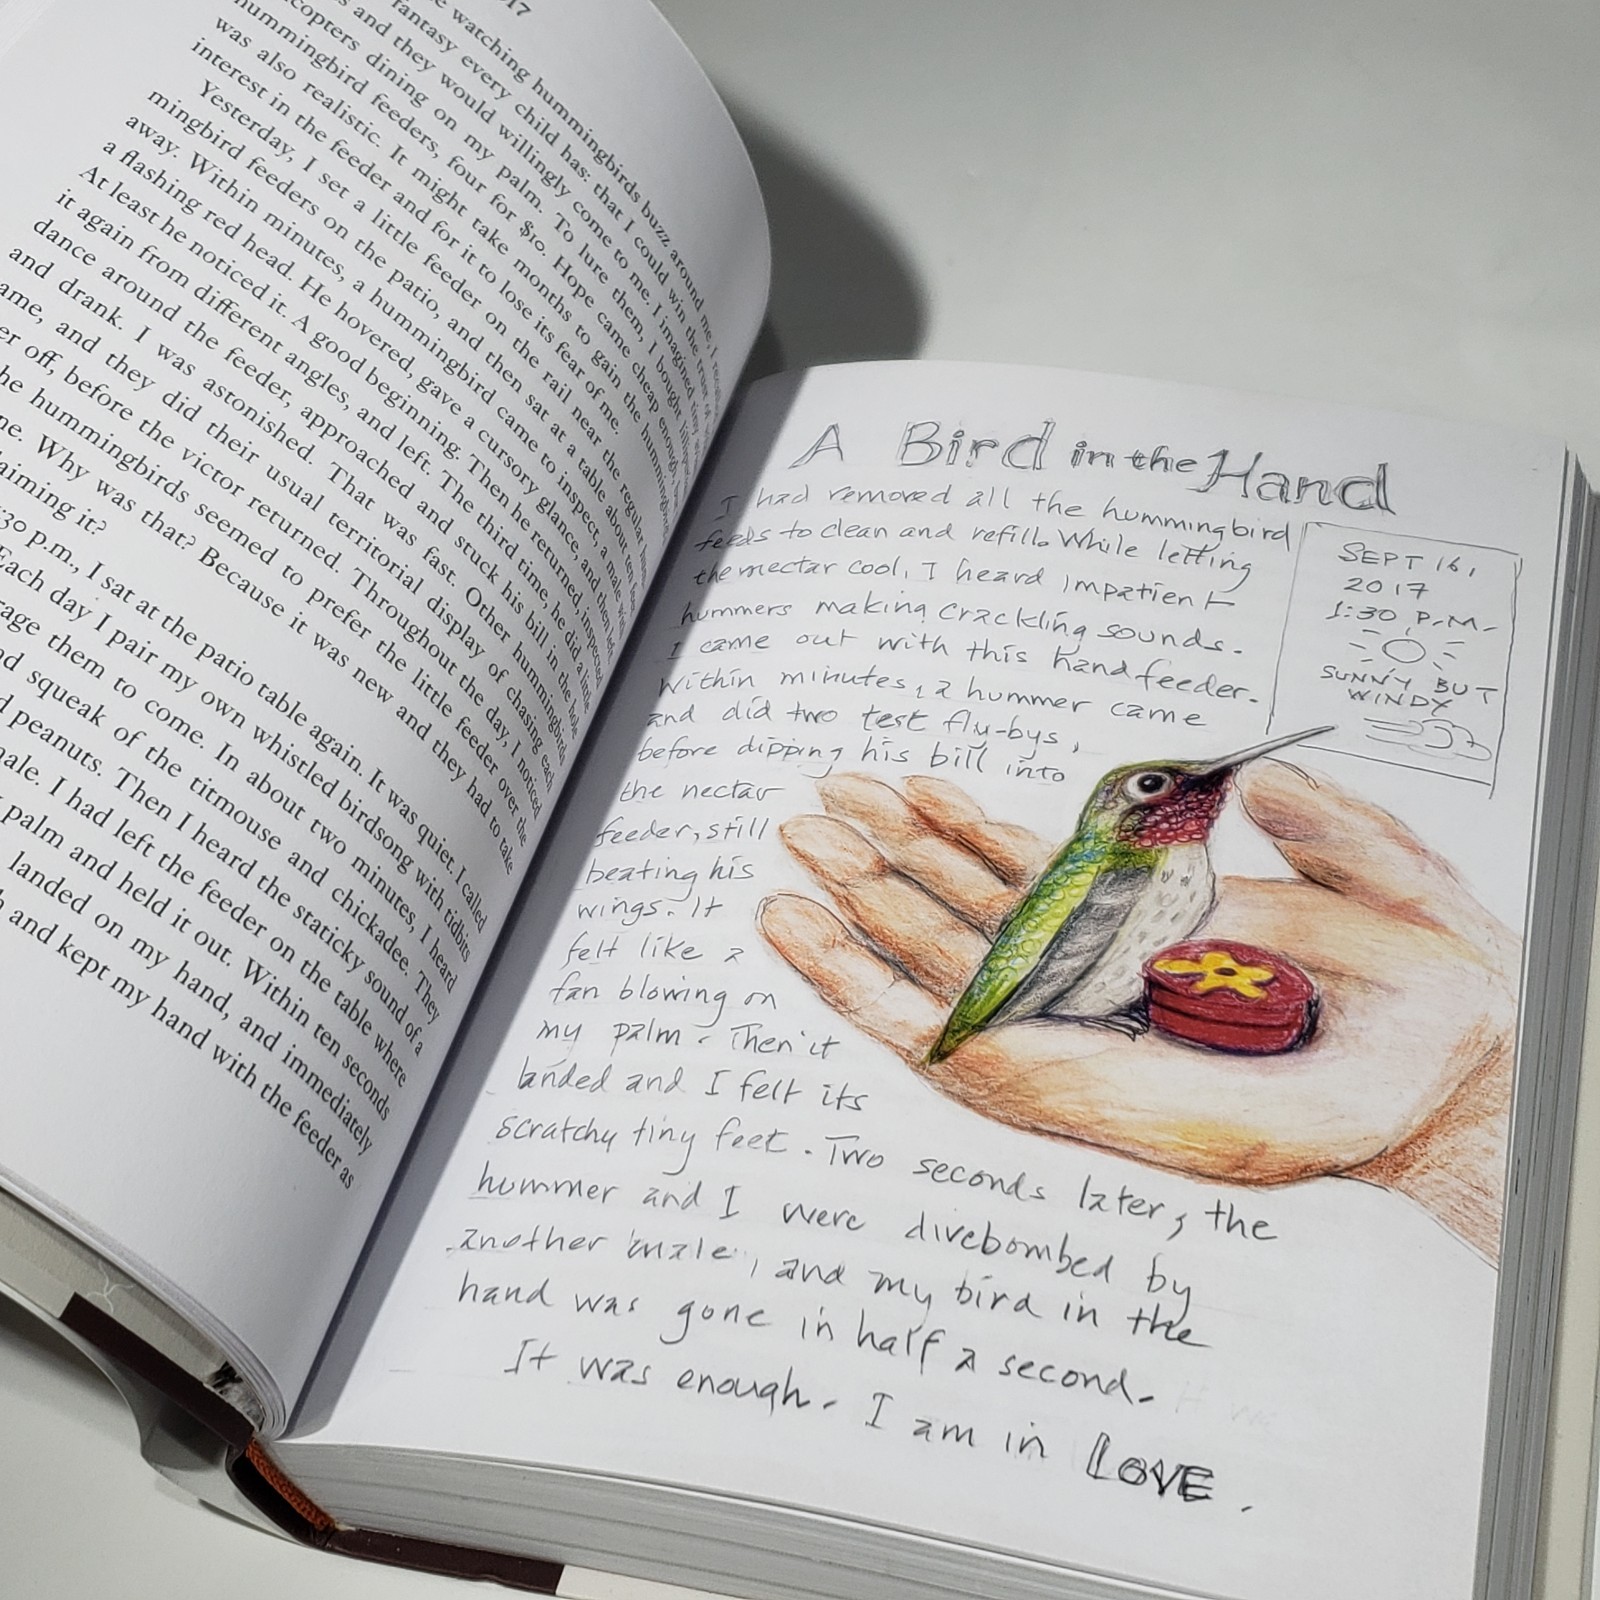 017
e watching hummingbirds buzz around me, I
fantasy every child has: that I could win the trust of
s and they would willingly come to me. I imagined tiny
copters dining on my palm. To lure them, I bought
hummingbird feeders, four for $10. Hope came cheap enough,
was also realistic. It might take months to gain the hummingbird
interest in the feeder and for it to lose its fear of me.
Yesterday, I set a little feeder on the rail near the regular hum-
mingbird feeders on the patio, and then sat at a table about ten feet
away. Within minutes, a hummingbird came to inspect, a male with
a flashing red head. He hovered, gave a cursory glance, and then left.
At least he noticed it. A good beginning. Then he returned, inspected
it again from different angles, and left. The third time, he did a little
dance around the feeder, approached and stuck his bill in the hole
and drank. I was astonished. That was fast. Other hummingbirds
ame, and they did their usual territorial display of chasing each
er off, before the victor returned. Throughout the day, I noticed
he hummingbirds seemed to prefer the little feeder over the
ne. Why was that? Because it was new and they had to take
aiming it?
:30 p.m., I sat at the patio table again. It was quiet. I called
Each day I pair my own whistled birdsong with tidbits
rage them to come. In about two minutes, I heard
nd squeak of the titmouse and chickadee. They
d peanuts. Then I heard the staticky sound of a
nale. I had left the feeder on the table where
palm and held it out. Within ten seconds
landed on my hand, and immediately
h and kept my hand with the feeder as
A Bird in the Hand
I had removed all the hummingbird
feeds to clean and refill. While letting
the nectar cool, I heard impatient
hummers making crackling sounds.
I came out with this hand feeder.
Within minutes, a hummer came
and did two test fly-bys,
before dipping his bill into
the nectar
feeder, still
beating his
wings. It
felt like a
fan blowing on
my palm. Then it
landed and I felt its
scratchy tiny feet. Two seconds later, the
hummer and I were divebombed by
another male, and my bird in the
hand was gone in half a second.
It was enough. I am in LOVE.
SEPT 16,
2017
1:30 P.M.
SUNNY BUT
WINDY